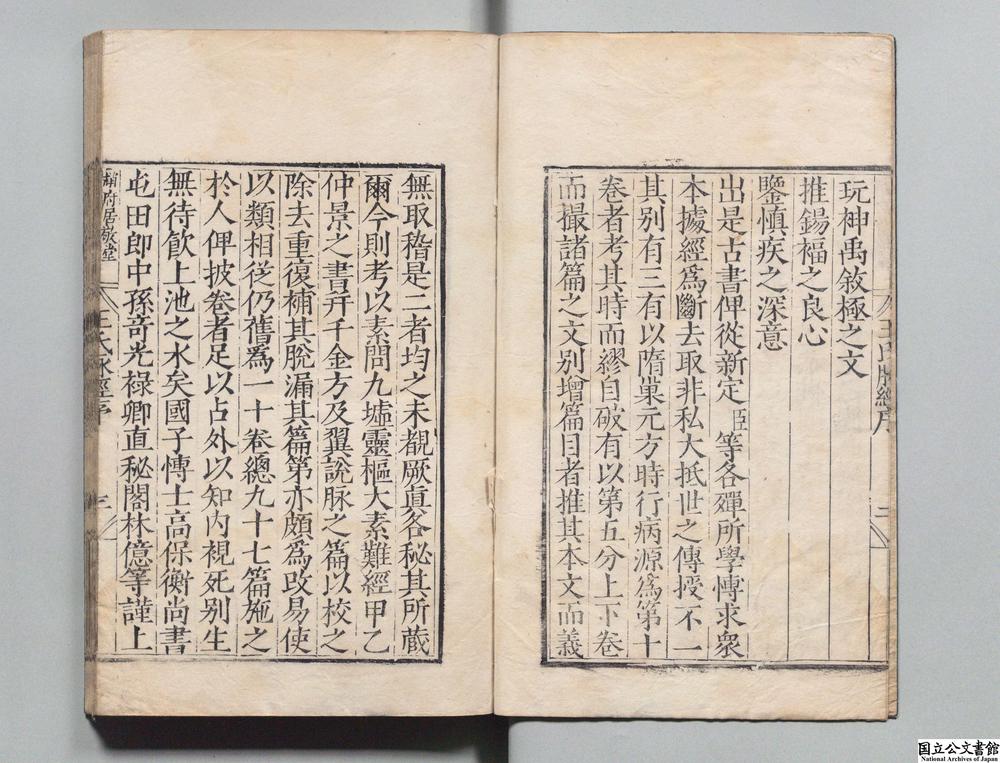 玩神禹敘極之文
推錫福之良心
鑒慎疾之深意
出是古書俾從新定臣等各殫所學博求衆
本據經爲斷去取非私大抵世之傳授不一
其别有三有以隋巢元方時行病源爲第十
卷者考其時而繆自破有以第五分上下卷
而撮諸篇之文别增篇目者推其本文而義
王氏脉經序
二
無取稽是二者均之未覩厥眞各秘其所蔵
爾今則考以素問九墟靈樞太素難經甲乙
仲景之書幷千金方及翼說脉之篇以校之
除去重復補其脫漏其篇第亦頗爲改易使
以類相從仍舊爲一十卷總九十七篇施之
於人俾披卷者足以占外以知内視死别生
無待飮上池之水矣國子博士高保衡尚書
屯田郎中孫奇光祿卿直秘閣林億等謹上
府居敬堂
王氏脉經序
三
国立公文書館
National Archives of Japan